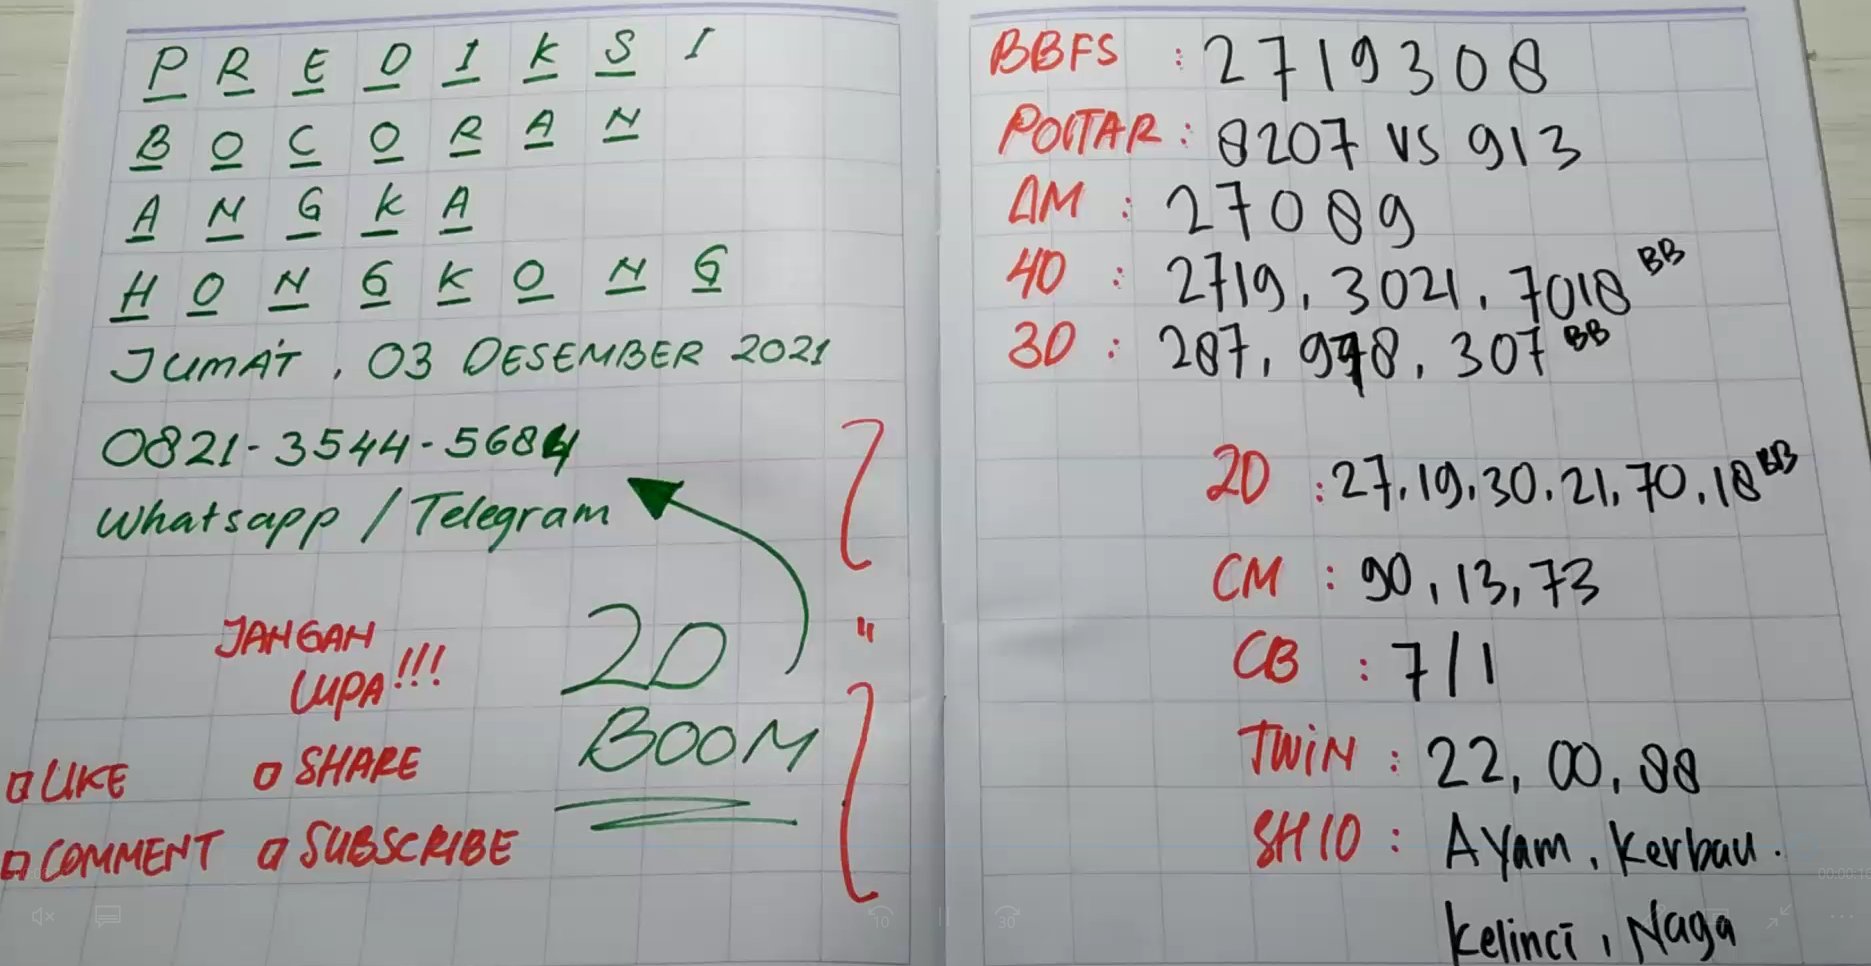 PREDIKSI
BOCORAN
ANGKA
HONGKONG
JUMA'T, 03 DESEMBER 2021
0821-3544-5684
Whatsapp / Telegram
JANGAN
LUPA !!!
2D
BOOM
LIKE
SHARE
COMMENT
SUBSCRIBE
BBFS : 2719308
POLTAR : 8207 VS 913
AM : 27089
4D : 2719, 3021, 7018 BB
3D : 287, 978, 307 BB
2D : 27, 19, 30, 21, 70, 18 BB
CM : 90, 13, 73
CB : 7/1
TWIN : 22, 00, 88
SHIO : Ayam, Kerbau.
Kelinci, Naga
10
30